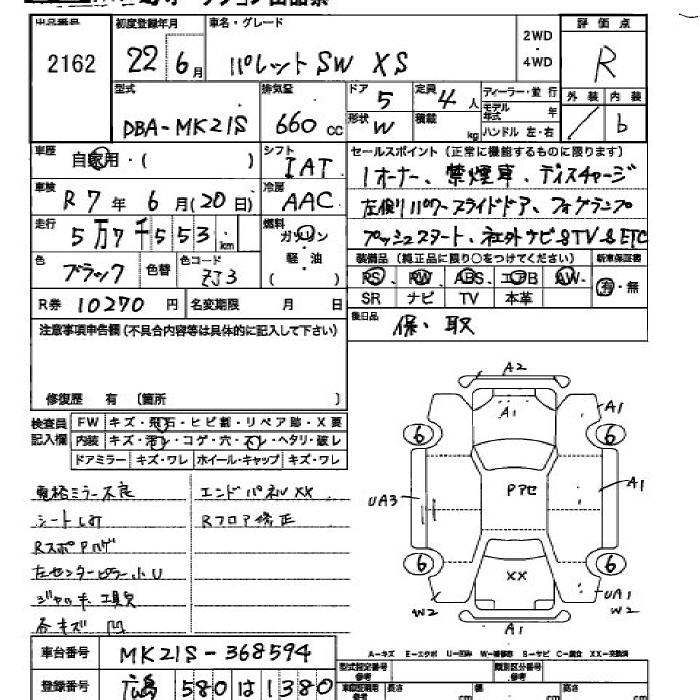 出品番号 初度登録年月 車名・グレード 2WD・4WD 評価点
2162 22年6月 パレットSW XS R
型式 排気量 ドア 5 定員 4人 ディーラー・並行 外装 内装
DBA-MK21S 660cc 形状 W 積載 kg モデル年式 年 ハンドル 左・右 / b
車歴 自家用・( ) シフト IAT セールスポイント(正常に機能するものに限ります)
車検 R7年6月(20日) 冷房 AAC 1オーナー、禁煙車、ディスチャージ
走行 5万7千553km 燃料 ガソリン・軽油 ( ) 左側パワースライドドア、フォグランプ
プッシュスタート、社外ナビ&TV&ETC
色 ブラック 色替 色コード ZJ3 装備品(純正品に限り○をつけてください) 新車保証書
RS RW ABS エアB AW 有・無
R券 10270円 名変期限 月 日 SR ナビ TV 本革
注意事項申告欄(不具合内容等は具体的に記入して下さい) 後日品 保、取
修復歴 有 〔箇所 〕
検査員記入欄 FW キズ・飛石・ヒビ割・リペア跡・X要
内装 キズ・汚レ・コゲ・穴・スレ・ヘタリ・破レ
ドアミラー キズ・ワレ ホイール・キャップ キズ・ワレ
ミラー不良 エンドパネルXX
シート Rフロア修正
RスポPハゲ
左センターピラー小U
ジャッキ、工具欠
各キズ凹
A2
A1 A1
6 6
UA3 Pアセ A1
6 6
XX
W2 UA1
W2
A1
A-キズ E-エクボ U-凹み W-補修跡 S-サビ C-腐食 XX-交換済
車台番号 MK21S-368594 型式指定番号 参考 類別区分番号 参考
登録番号 広島 580 は 1380 長さ cm 幅 cm 高さ cm